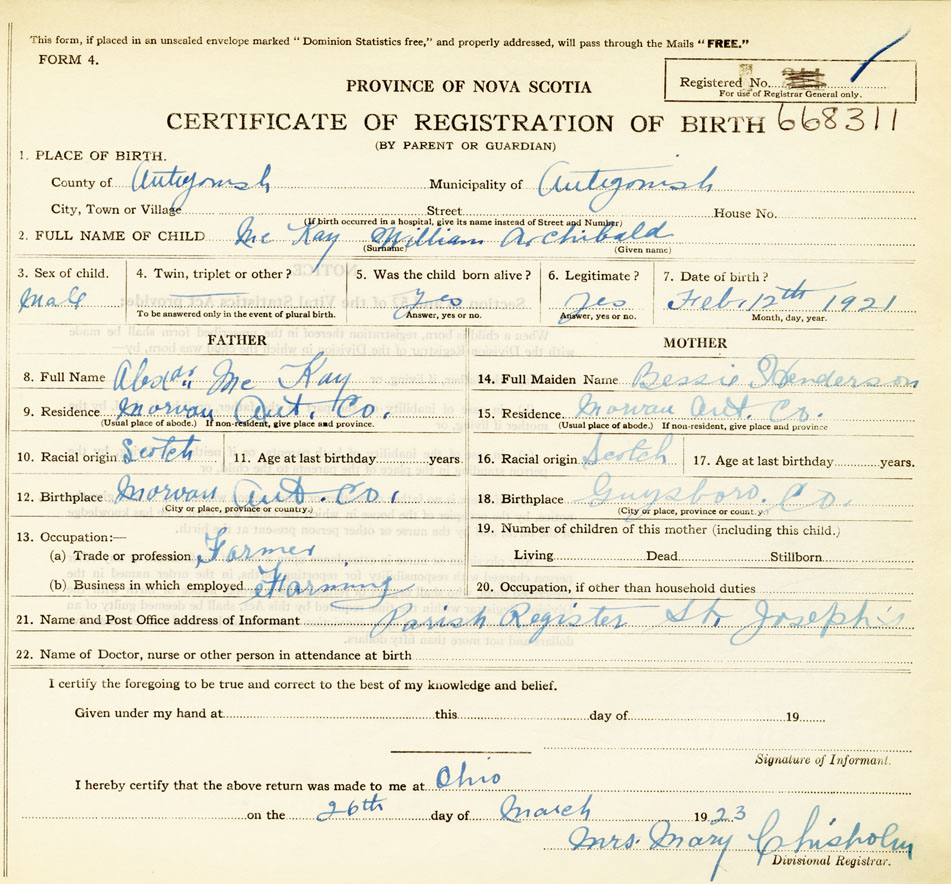 This form, if placed in an unsealed envelope marked "Dominion Statistics free," and properly addressed, will pass through the Mails "FREE."
FORM 4.
PROVINCE OF NOVA SCOTIA
Registered No.
For use of Registrar General only.
CERTIFICATE OF REGISTRATION OF BIRTH 668311
(BY PARENT OR GUARDIAN)
1. PLACE OF BIRTH.
County of Antigonish Municipality of Antigonish
City, Town or Village Street House No.
(If birth occurred in a hospital, give its name instead of Street and Number)
2. FULL NAME OF CHILD Mc Kay William Archibald
(Surname) (Given name)
3. Sex of child. 4. Twin, triplet or other? 5. Was the child born alive? 6. Legitimate? 7. Date of birth?
Male Yes Yes Feb. 12th 1921
To be answered only in the event of plural birth. Answer, yes or no. Answer, yes or no. Month, day, year.
FATHER MOTHER
8. Full Name Mc Kay 14. Full Maiden Name Bessie Henderson
9. Residence Morvan Ant. Co. 15. Residence Morvan Ant. Co.
(Usual place of abode.) If non-resident, give place and province. (Usual place of abode.) If non-resident, give place and province
10. Racial origin Scotch 11. Age at last birthday years 16. Racial origin Scotch 17. Age at last birthday years.
12. Birthplace Morvan Ant. Co. 18. Birthplace Guysboro. Co.
(City or place, province or country.) (City or place, province or country.)
13. Occupation:— 19. Number of children of this mother (including this child.)
(a) Trade or profession Farmer Living Dead Stillborn
(b) Business in which employed Farming 20. Occupation, if other than household duties
21. Name and Post Office address of Informant Parish Register St. Joseph's
22. Name of Doctor, nurse or other person in attendance at birth
I certify the foregoing to be true and correct to the best of my knowledge and belief.
Given under my hand at this day of 19
Signature of Informant.
I hereby certify that the above return was made to me at Ohio
on the 26th day of March 1923
Mrs. Mary Chisholm
Divisional Registrar.